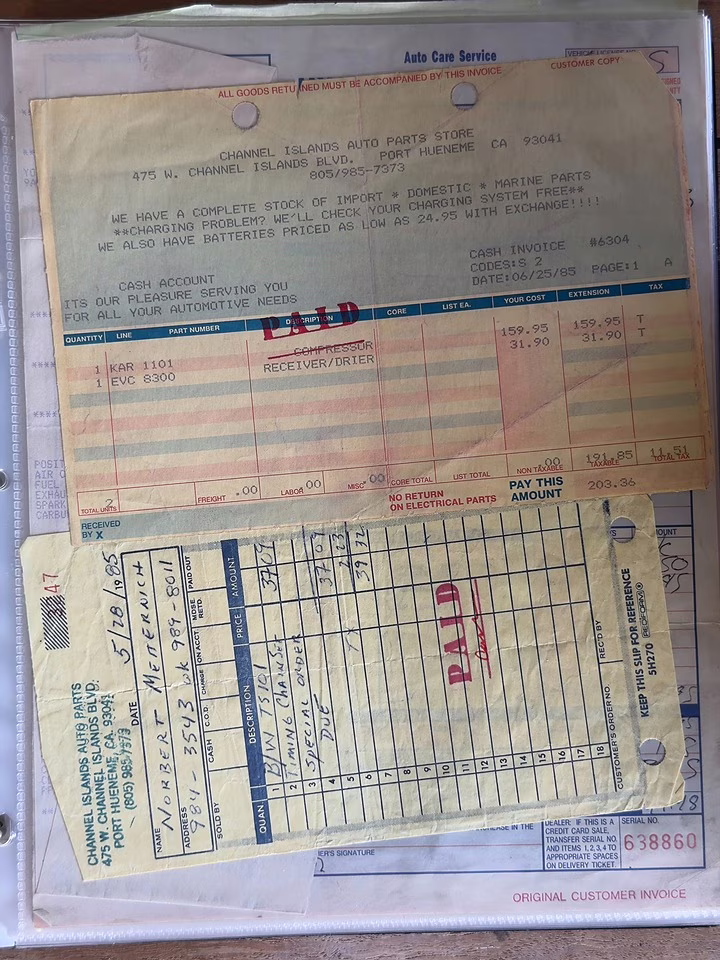 Auto Care Service
CUSTOMER COPY
ALL GOODS RETURNED MUST BE ACCOMPANIED BY THIS INVOICE
CHANNEL ISLANDS AUTO PARTS STORE
475 W. CHANNEL ISLANDS BLVD. PORT HUENEME CA 93041
805/985-7373
WE HAVE A COMPLETE STOCK OF IMPORT * DOMESTIC * MARINE PARTS
**CHARGING PROBLEM? WE'LL CHECK YOUR CHARGING SYSTEM FREE**
WE ALSO HAVE BATTERIES PRICED AS LOW AS 24.95 WITH EXCHANGE!!!!
CASH INVOICE #6304
CODES:S 2
DATE:06/25/85 PAGE:1 A
CASH ACCOUNT
ITS OUR PLEASURE SERVING YOU
FOR ALL YOUR AUTOMOTIVE NEEDS
PAID
QUANTITY LINE PART NUMBER DESCRIPTION CORE LIST EA. YOUR COST EXTENSION TAX
1 KAR 1101 COMPRESSOR 159.95 159.95 T
1 EVC 8300 RECEIVER/DRIER 31.90 31.90 T
2 .00 .00 .00 .00 191.85 11.51
TOTAL UNITS FREIGHT LABOR MISC CORE TOTAL LIST TOTAL NON TAXABLE TAXABLE TOTAL TAX
NO RETURN
ON ELECTRICAL PARTS
PAY THIS
AMOUNT
203.36
RECEIVED
BY X
47
CHANNEL ISLANDS AUTO PARTS
475 W. CHANNEL ISLANDS BLVD.
PORT HUENEME, CA. 93041
(805) 985-7373
DATE 5/28/1985
NAME NORBERT MEMERNICH
ADDRESS 984-3543 WK 989-8011
SOLD BY CASH C.O.D. CHARGE ON ACCT. MDSE RETD. PAID OUT
QUAN. DESCRIPTION PRICE AMOUNT
1 B/W TS101 37 09
2 TIMING CHAINSET
3 SPECIAL ORDER
4 DUE 37 09
5 TX 2 23
6 39 32
7
8
9
10
11
12
13
14
15
16
17
18
PAID
CUSTOMER'S ORDER NO. REC'D BY
KEEP THIS SLIP FOR REFERENCE
5H270 REDIFORM®
DEALER: IF THIS IS A
CREDIT CARD SALE,
TRANSFER SERIAL NO.
AND ITEMS 1, 2, 3, 4 TO
APPROPRIATE SPACES
ON DELIVERY TICKET
SERIAL NO.
638860
ER'S SIGNATURE
ORIGINAL CUSTOMER INVOICE